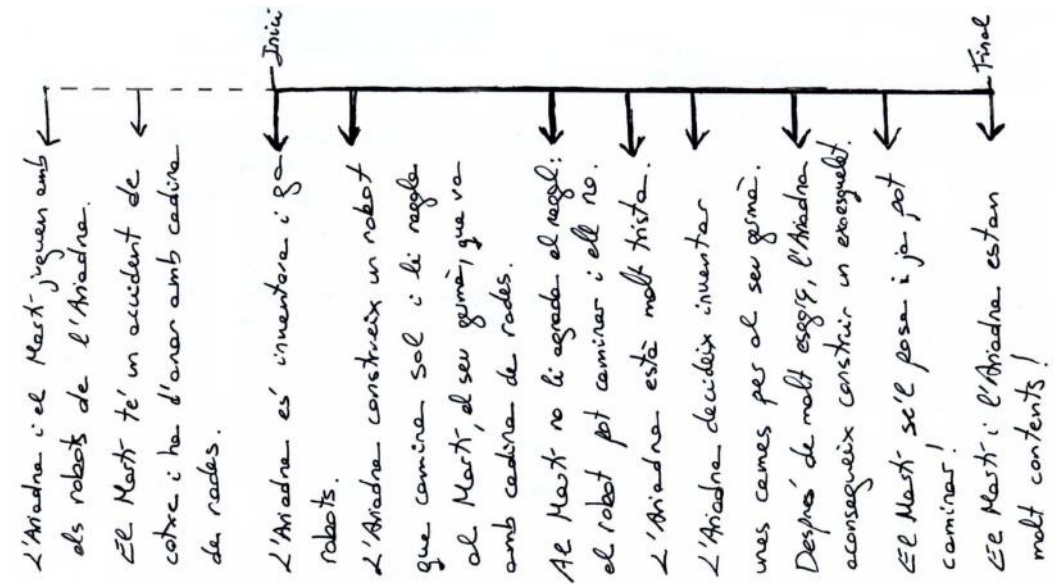 Inici
Final
L'Ariadna i el Martí juguen amb
els robots de l'Ariadna.
El Martí té un accident de
cotxe i ha d'anar amb cadira
de rodes.
L'Ariadna és inventora i fa
robots.
L'Ariadna construeix un robot
que camina sol i li regala
al Martí, el seu germà, que va
amb cadira de rodes.
Al Martí no li agrada el regal:
el robot pot caminar i ell no.
L'Ariadna està molt trista.
L'Ariadna decideix inventar
unes cames per al seu germà.
Després de molt esforç, l'Ariadna
aconsegueix construir un exoesquelet.
El Martí se'l posa i ja pot
caminar!
El Martí i l'Ariadna estan
molt contents!